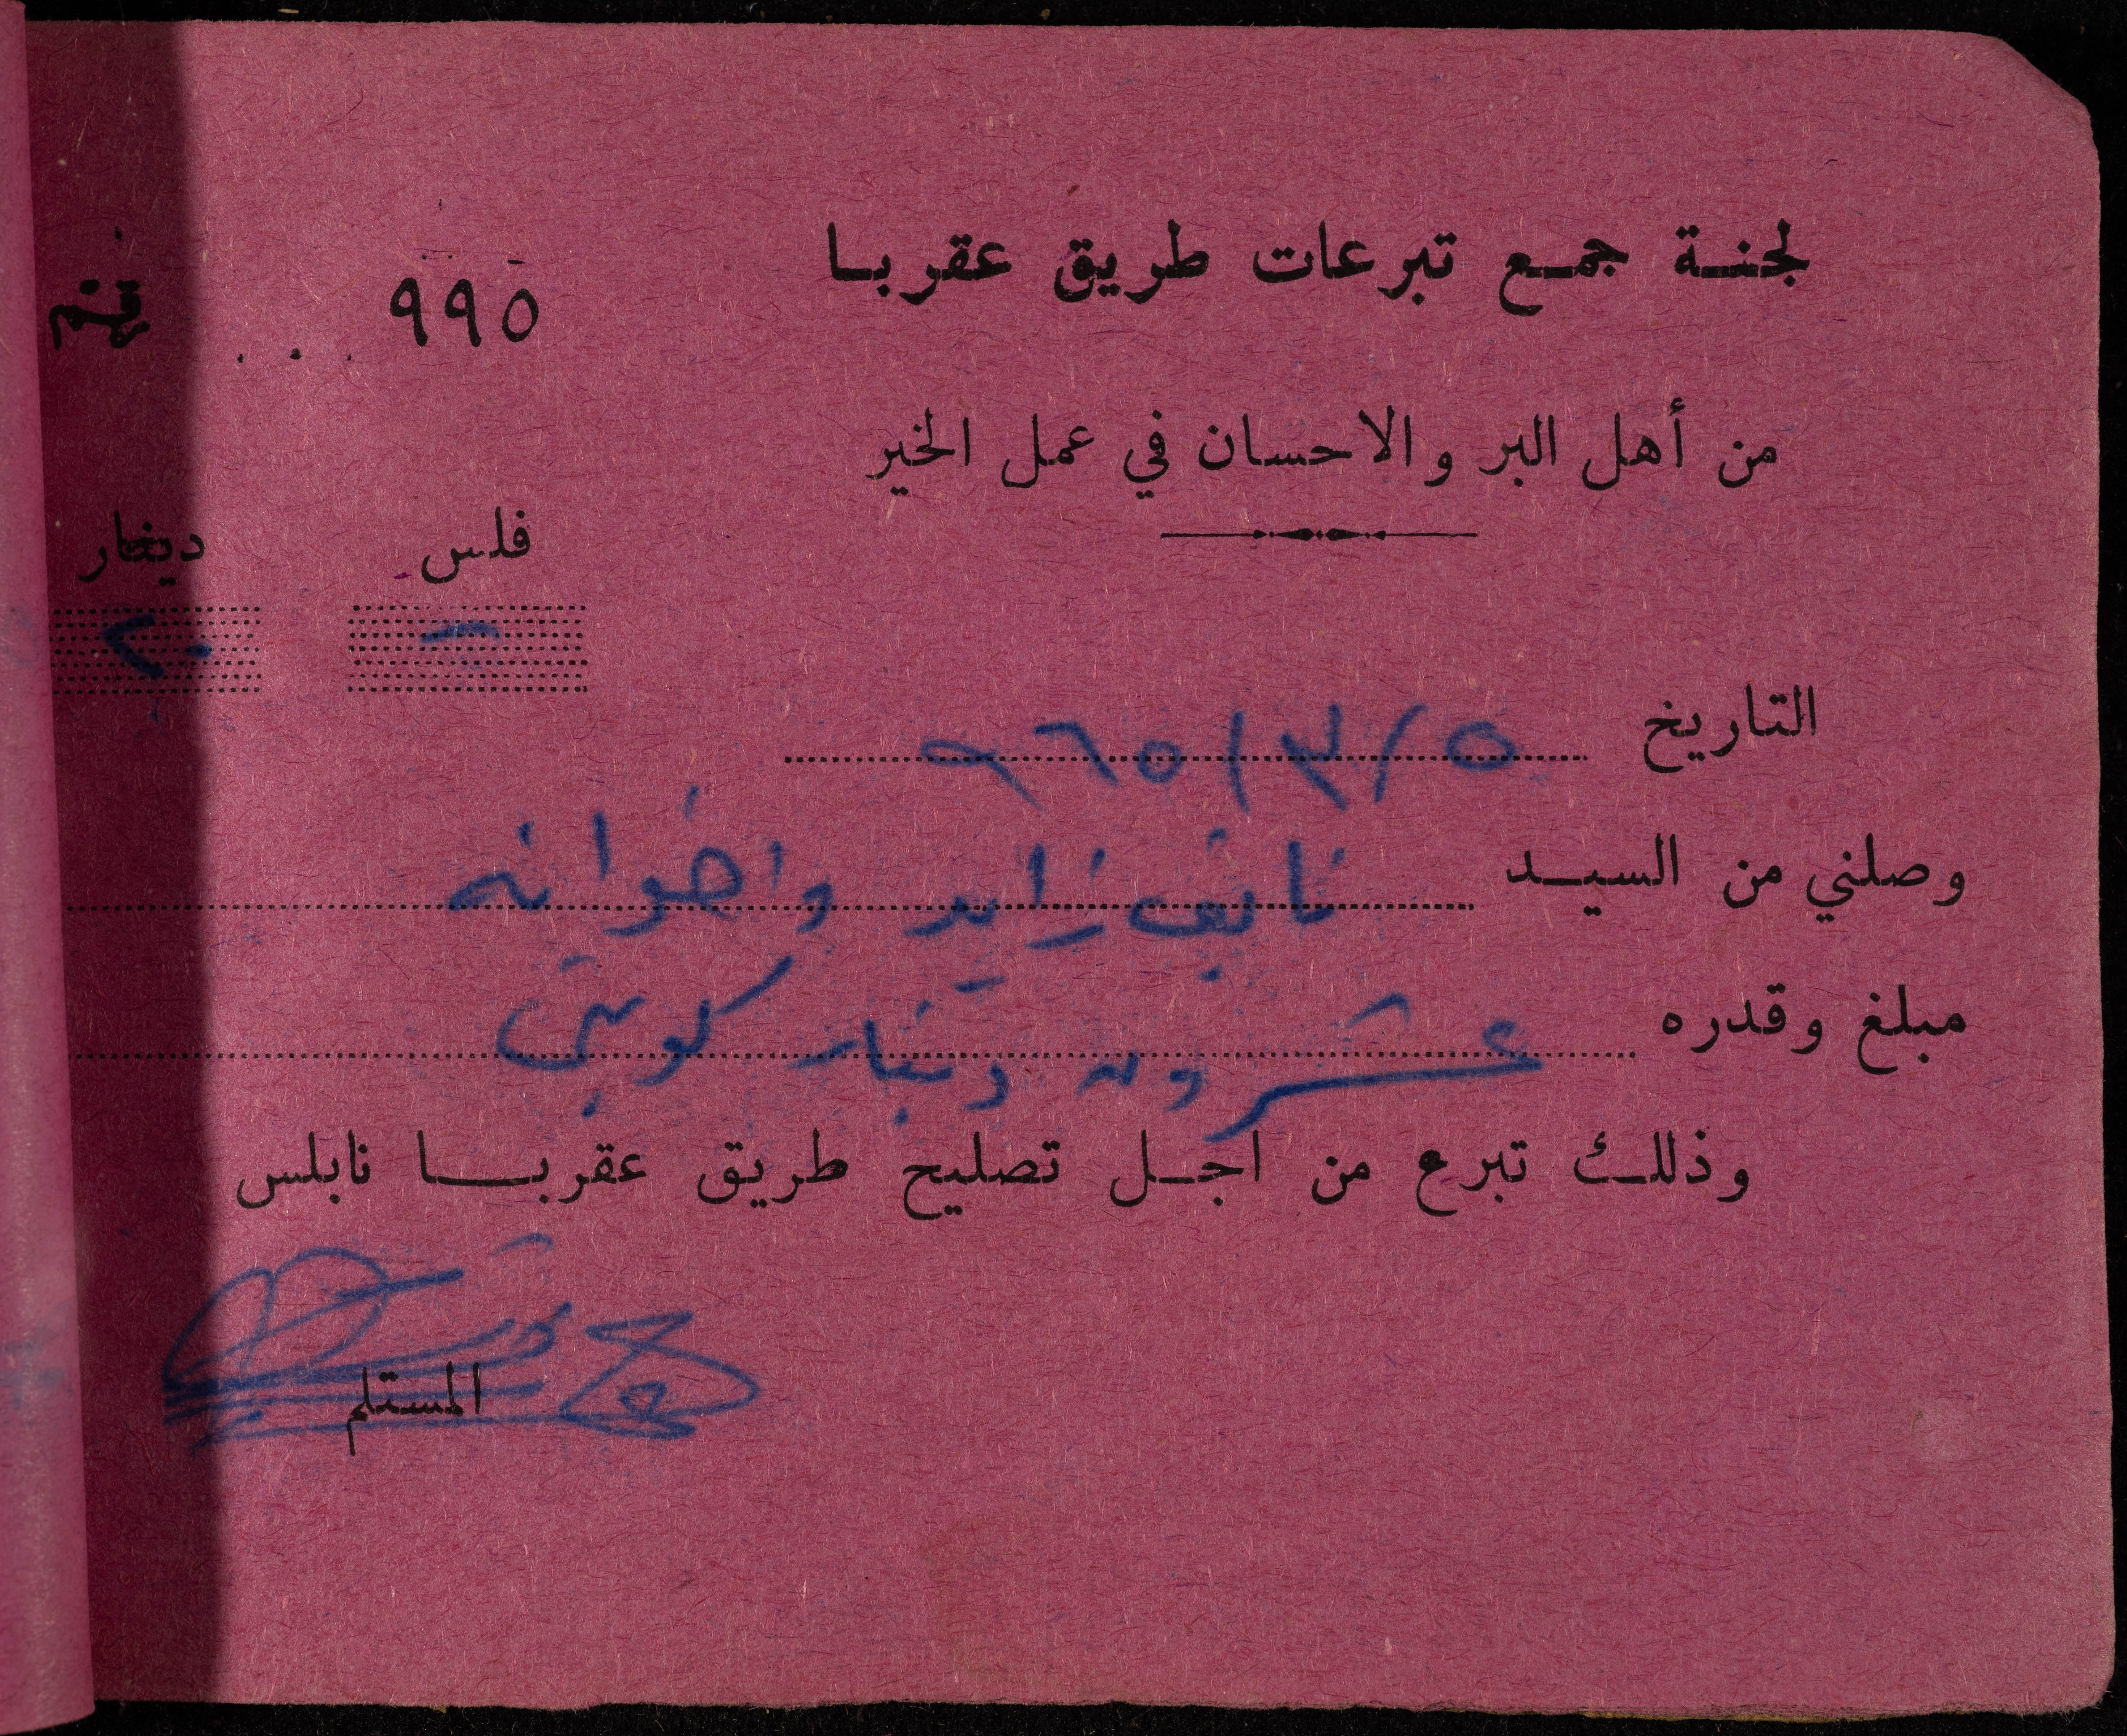 لجنة جمع تبرعات طريق عقربا
رقم ... ٩٩٥
من أهل البر والاحسان في عمل الخير
فلس دينار
- ٢٠
التاريخ ٥/٣/٩٦٥
وصلني من السيد نايف زايد واخوانه
مبلغ وقدره عشرون دينار كويتي
وذلك تبرع من اجل تصليح طريق عقربا نابلس
المستلم